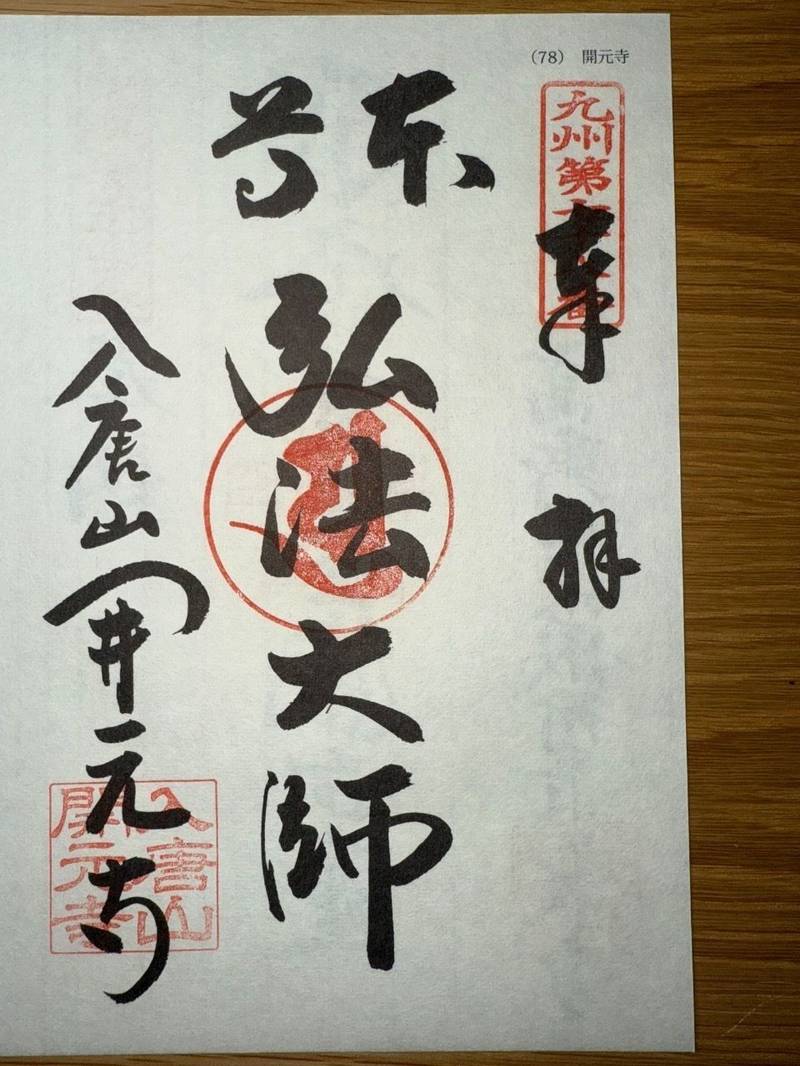 (78) 開元寺
九州第七十八番
奉拝
本尊
弘法大師
入唐山開元寺
入唐山
開元寺